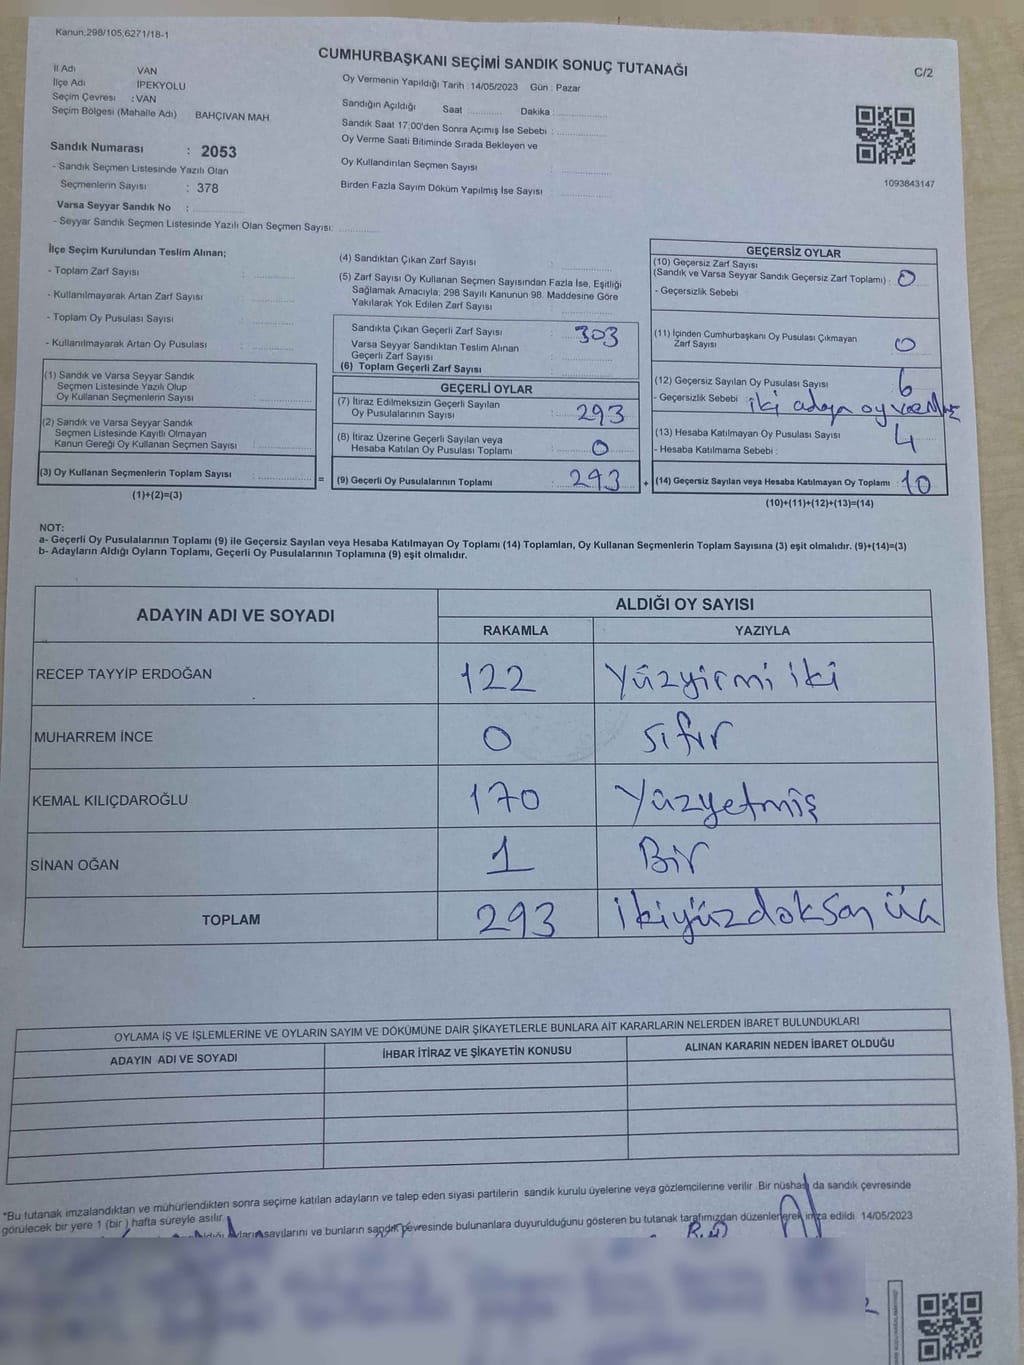 Kanun;298/105,6271/18-1
CUMHURBAŞKANI SEÇİMİ SANDIK SONUÇ TUTANAĞI
C/2
İl Adı VAN
İlçe Adı İPEKYOLU
Seçim Çevresi : VAN
Seçim Bölgesi (Mahalle Adı) BAHÇIVAN MAH.
Sandık Numarası : 2053
- Sandık Seçmen Listesinde Yazılı Olan
Seçmenlerin Sayısı : 378
Varsa Seyyar Sandık No :
- Seyyar Sandık Seçmen Listesinde Yazılı Olan Seçmen Sayısı:
Oy Vermenin Yapıldığı Tarih : 14/05/2023 Gün : Pazar
Sandığın Açıldığı Saat Dakika :
Sandık Saat 17:00'den Sonra Açımış İse Sebebi :
Oy Verme Saati Bitiminde Sırada Bekleyen ve
Oy Kullandırılan Seçmen Sayısı :
Birden Fazla Sayım Döküm Yapılmış İse Sayısı :
1093843147
İlçe Seçim Kurulundan Teslim Alınan;
- Toplam Zarf Sayısı :
- Kullanılmayarak Artan Zarf Sayısı :
- Toplam Oy Pusulası Sayısı :
- Kullanılmayarak Artan Oy Pusulası :
(1) Sandık ve Varsa Seyyar Sandık
Seçmen Listesinde Yazılı Olup
Oy Kullanan Seçmenlerin Sayısı :
(2) Sandık ve Varsa Seyyar Sandık
Seçmen Listesinde Kayıtlı Olmayan
Kanun Gereği Oy Kullanan Seçmen Sayısı :
(3) Oy Kullanan Seçmenlerin Toplam Sayısı : =
(1)+(2)=(3)
(4) Sandıktan Çıkan Zarf Sayısı :
(5) Zarf Sayısı Oy Kullanan Seçmen Sayısından Fazla İse, Eşitliği
Sağlamak Amacıyla; 298 Sayılı Kanunun 98. Maddesine Göre
Yakılarak Yok Edilen Zarf Sayısı :
Sandıkta Çıkan Geçerli Zarf Sayısı : 303
Varsa Seyyar Sandıktan Teslim Alınan
Geçerli Zarf Sayısı :
(6) Toplam Geçerli Zarf Sayısı :
GEÇERLİ OYLAR
(7) İtiraz Edilmeksizin Geçerli Sayılan
Oy Pusulalarının Sayısı : 293
(8) İtiraz Üzerine Geçerli Sayılan veya
Hesaba Katılan Oy Pusulası Toplamı : 0
(9) Geçerli Oy Pusulalarının Toplamı : 293 +
GEÇERSİZ OYLAR
(10) Geçersiz Zarf Sayısı
(Sandık ve Varsa Seyyar Sandık Geçersiz Zarf Toplamı) : 0
- Geçersizlik Sebebi
(11) İçinden Cumhurbaşkanı Oy Pusulası Çıkmayan
Zarf Sayısı 0
(12) Geçersiz Sayılan Oy Pusulası Sayısı : 6
- Geçersizlik Sebebi iki adaya oy
(13) Hesaba Katılmayan Oy Pusulası Sayısı : 4
- Hesaba Katılmama Sebebi :
(14) Geçersiz Sayılan veya Hesaba Katılmayan Oy Toplamı : 10
(10)+(11)+(12)+(13)=(14)
NOT:
a- Geçerli Oy Pusulalarının Toplamı (9) ile Geçersiz Sayılan veya Hesaba Katılmayan Oy Toplamı (14) Toplamları, Oy Kullanan Seçmenlerin Toplam Sayısına (3) eşit olmalıdır. (9)+(14)=(3)
b- Adayların Aldığı Oyların Toplamı, Geçerli Oy Pusulalarının Toplamına (9) eşit olmalıdır.
ADAYIN ADI VE SOYADI ALDIĞI OY SAYISI
RAKAMLA YAZIYLA
RECEP TAYYİP ERDOĞAN 122 Yüzyirmi iki
MUHARREM İNCE 0 sıfır
KEMAL KILIÇDAROĞLU 170 Yüzyetmiş
SİNAN OĞAN 1 Bir
TOPLAM 293 ikiyüzdoksan üç
OYLAMA İŞ VE İŞLEMLERİNE VE OYLARIN SAYIM VE DÖKÜMÜNE DAİR ŞİKAYETLERLE BUNLARA AİT KARARLARIN NELERDEN İBARET BULUNDUKLARI
ADAYIN ADI VE SOYADI İHBAR İTİRAZ VE ŞİKAYETİN KONUSU ALINAN KARARIN NEDEN İBARET OLDUĞU
*Bu tutanak imzalandıktan ve mühürlendikten sonra seçime katılan adayların ve talep eden siyasi partilerin sandık kurulu üyelerine veya gözlemcilerine verilir. Bir nüshası da sandık çevresinde
görülecek bir yere 1 (bir ) hafta süreyle asılır.
sayılarını ve bunların sandık çevresinde bulunanlara duyurulduğunu gösteren bu tutanak tarafımızdan düzenlenerek imza edildi. 14/05/2023